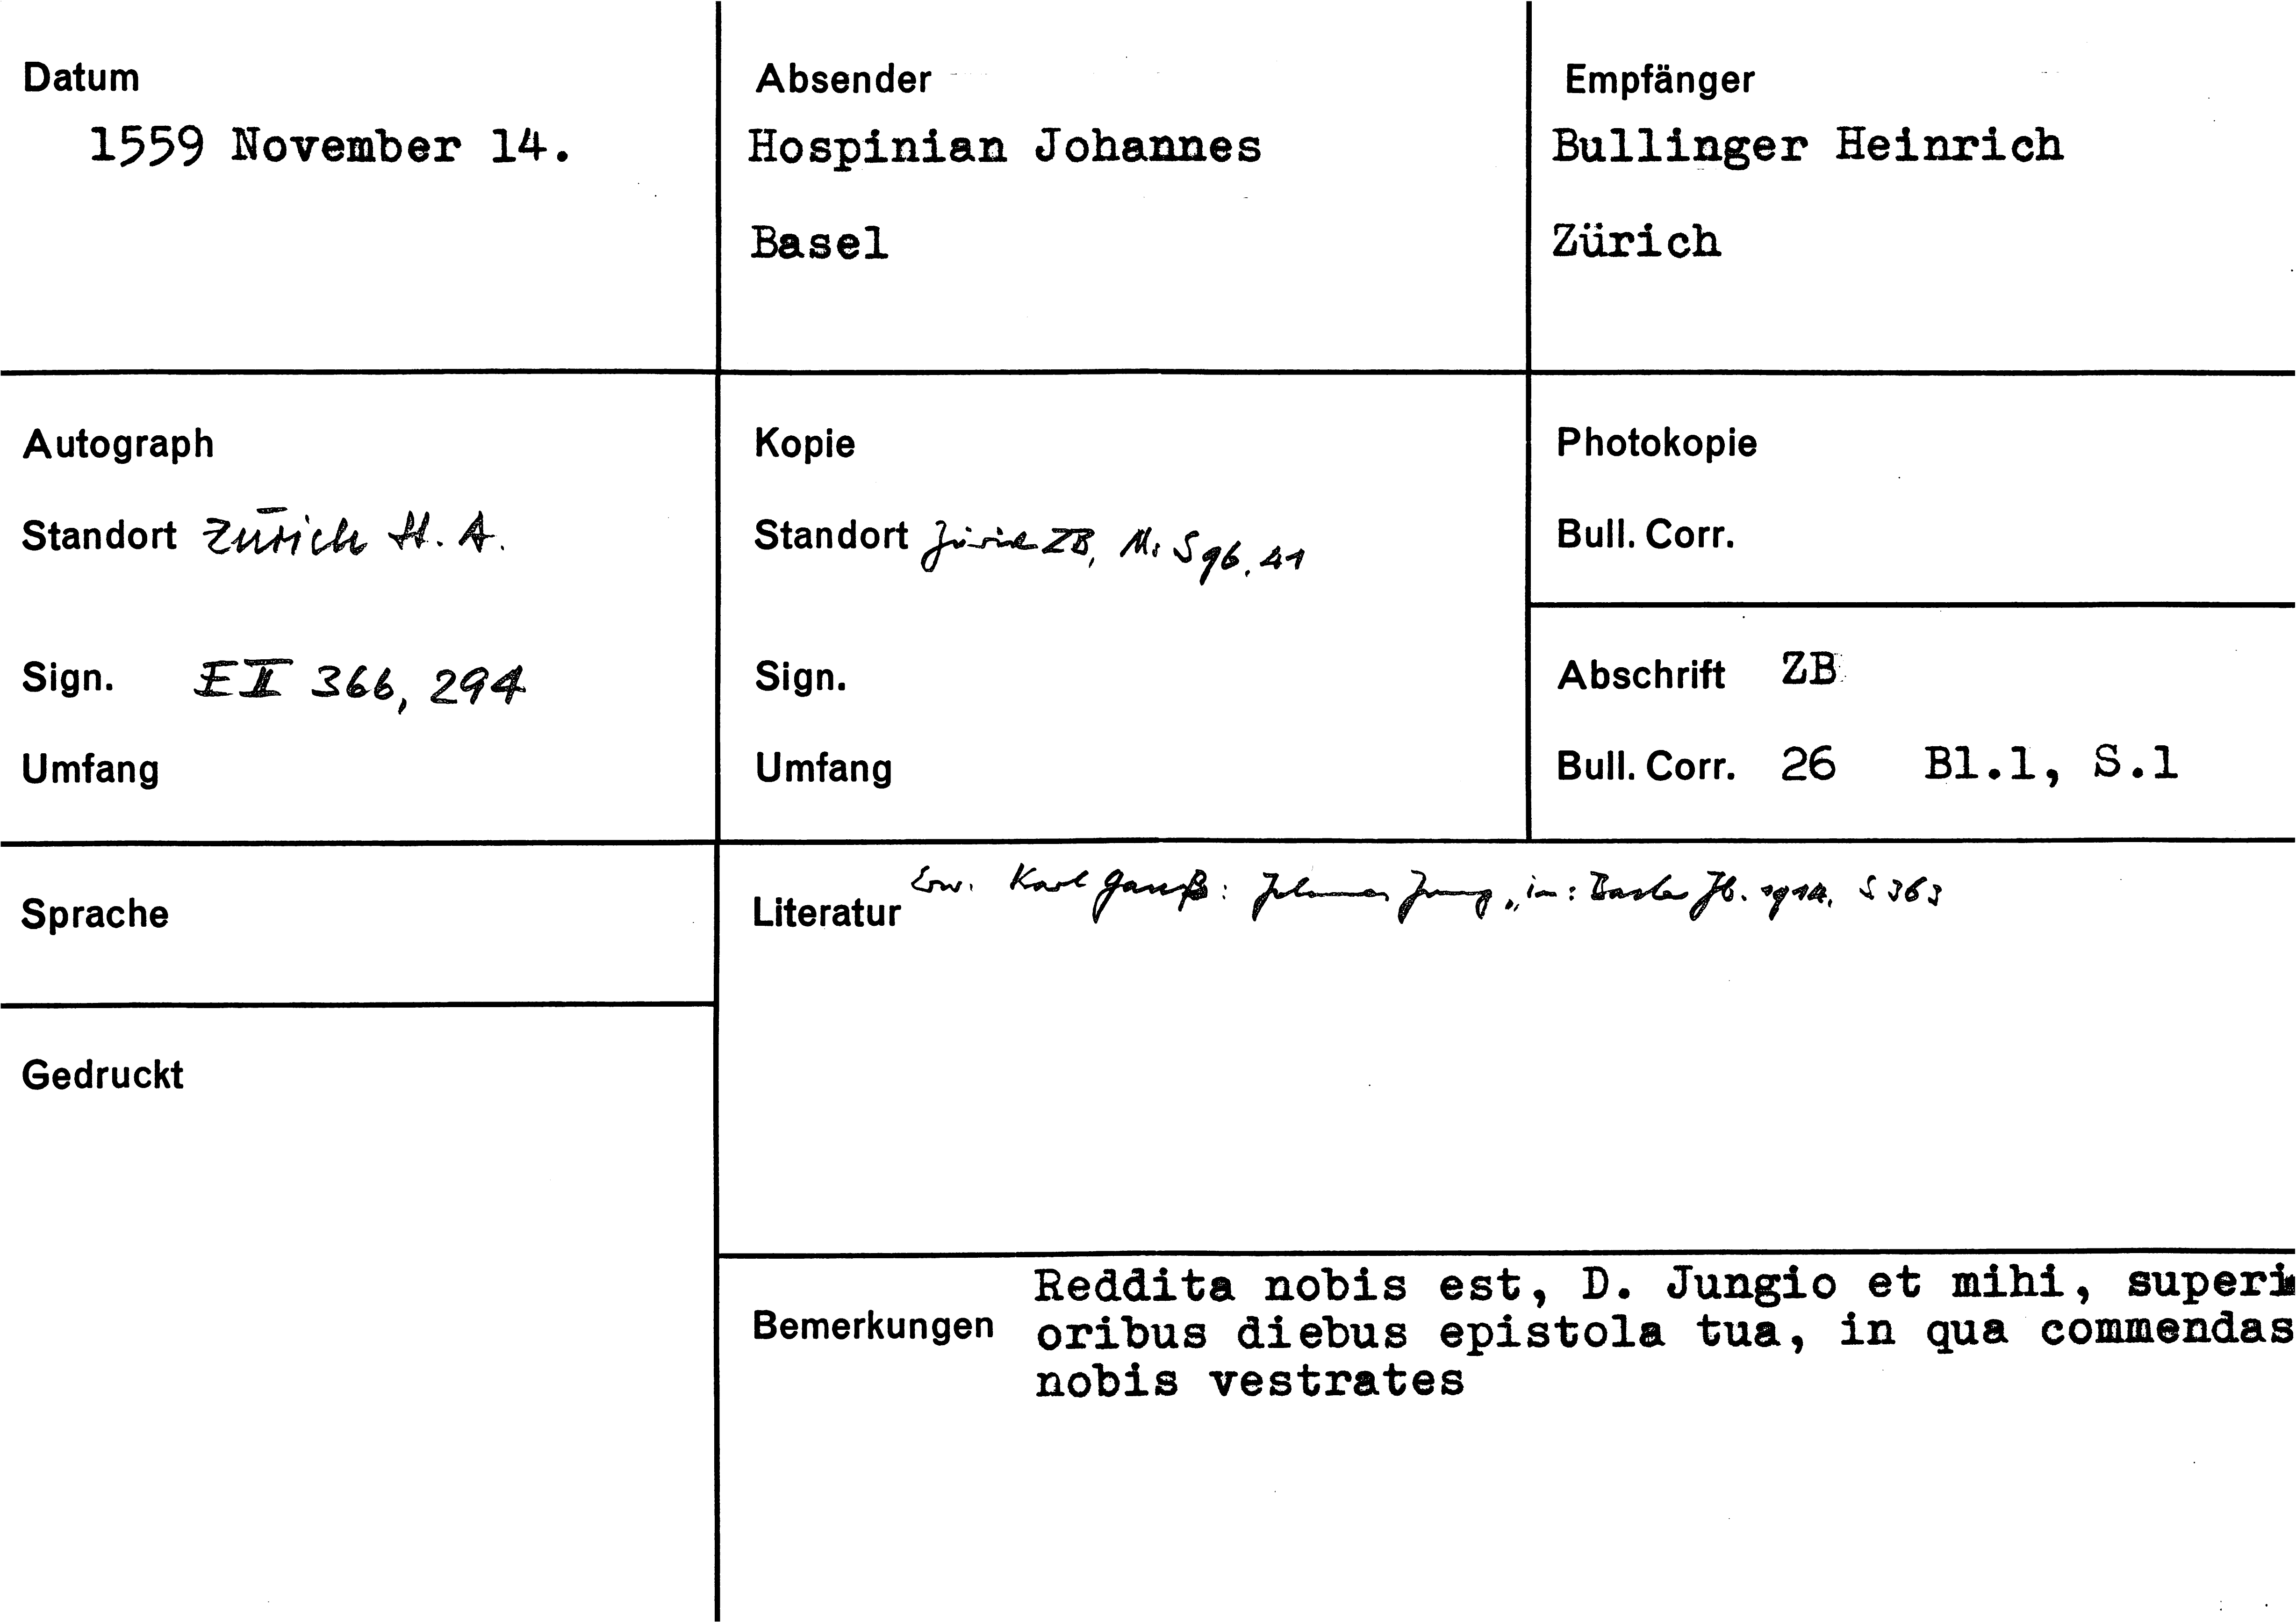 Datum
1559 November 14.
Absender
Hospinian Johannes
Basel
Empfänger
Bullinger Heinrich
Zürich
Autograph
Standort Zürich St. A.
Sign. E II 366, 294
Umfang
Kopie
Standort Zürich ZB, Ms S 96, 41
Sign.
Umfang
Photokopie
Bull. Corr.
Abschrift ZB
Bull. Corr. 26 Bl.1, S.1
Sprache
Literatur Erw. Karl Gauß: Johannes Jung, in: Basler Jb. S 363
Gedruckt
Bemerkungen
Reddita nobis est, D. Jungio et mihi, superi
oribus diebus epistola tua, in qua commendas
nobis vestrates